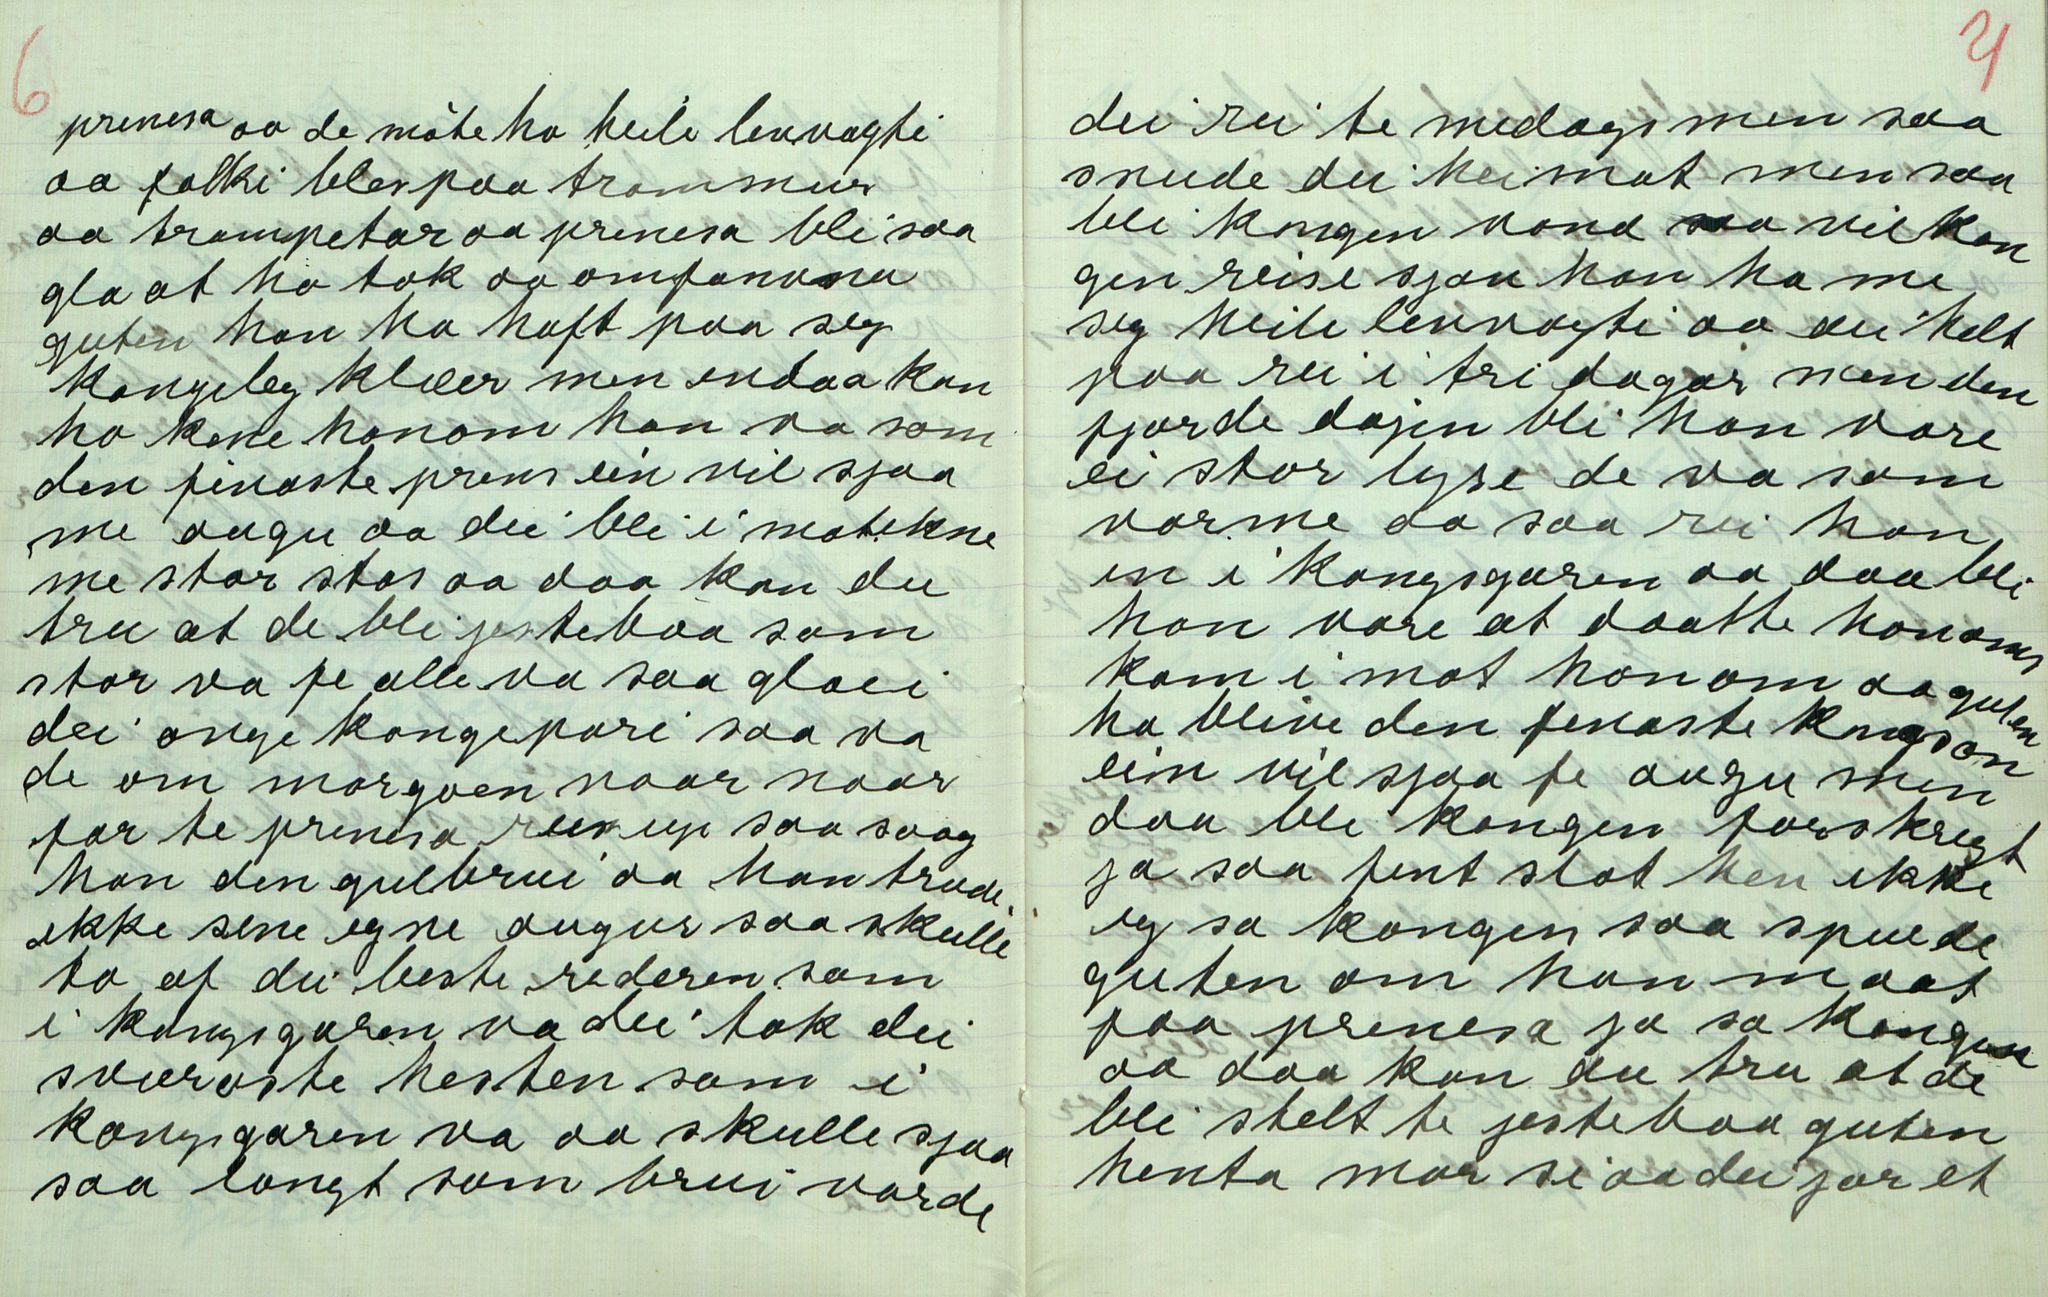 6
prensesa aa de møte ho heile levvagti
aa folki bles paa trommur
aa trompetar aa prenesa blei saa
gla at ho tok aa omfavna
guten han ha haft paa seg
kongeleg klæer men endaa kan
ho kene honom han va som
den finaste prens ein vil sjaa
me augu aa dei bli i motekne
me stor stas aa daa kan du
tru at de bli jesteboa som
stor va fe alle va saa gla i
dei onge kongepari saa va
de om morgoen naar naar
far te prenesa reis up saa saag
han den gulbrui aa han trude
ikke sene egne augur saa skulle
to af dei beste rederen som
i kongsgaren va dei tok dei
sværaste hesten som i
kongsgaren va aa skulle sjaa
saa langt som brui varde
7
dei rei te medags men saa
snude dei heimat men saa
bli kongen vond saa vil kon
gen reise sjøu han ha me
seg heile levvagti aa dei helt
paa rei i tri dagar men den
fjorde dajen bli han vare
ei stor lyse de va som
varme aa saa rei han
in i kongsgaren aa daa bli
han vare at daatte honoms
kom i mot honom aa guten
ha blive den fenaste kongson
ein vil sjaa fe augu men
daa bli kongen forskregt
ja saa fent slot hen ikke
eg sa kongen saa spurde
guten om han maat
faa prenesa ja sa kongen
aa daa kan du tru at de
bli stelt te jesteboa guten
henta mor si aa dei jor et